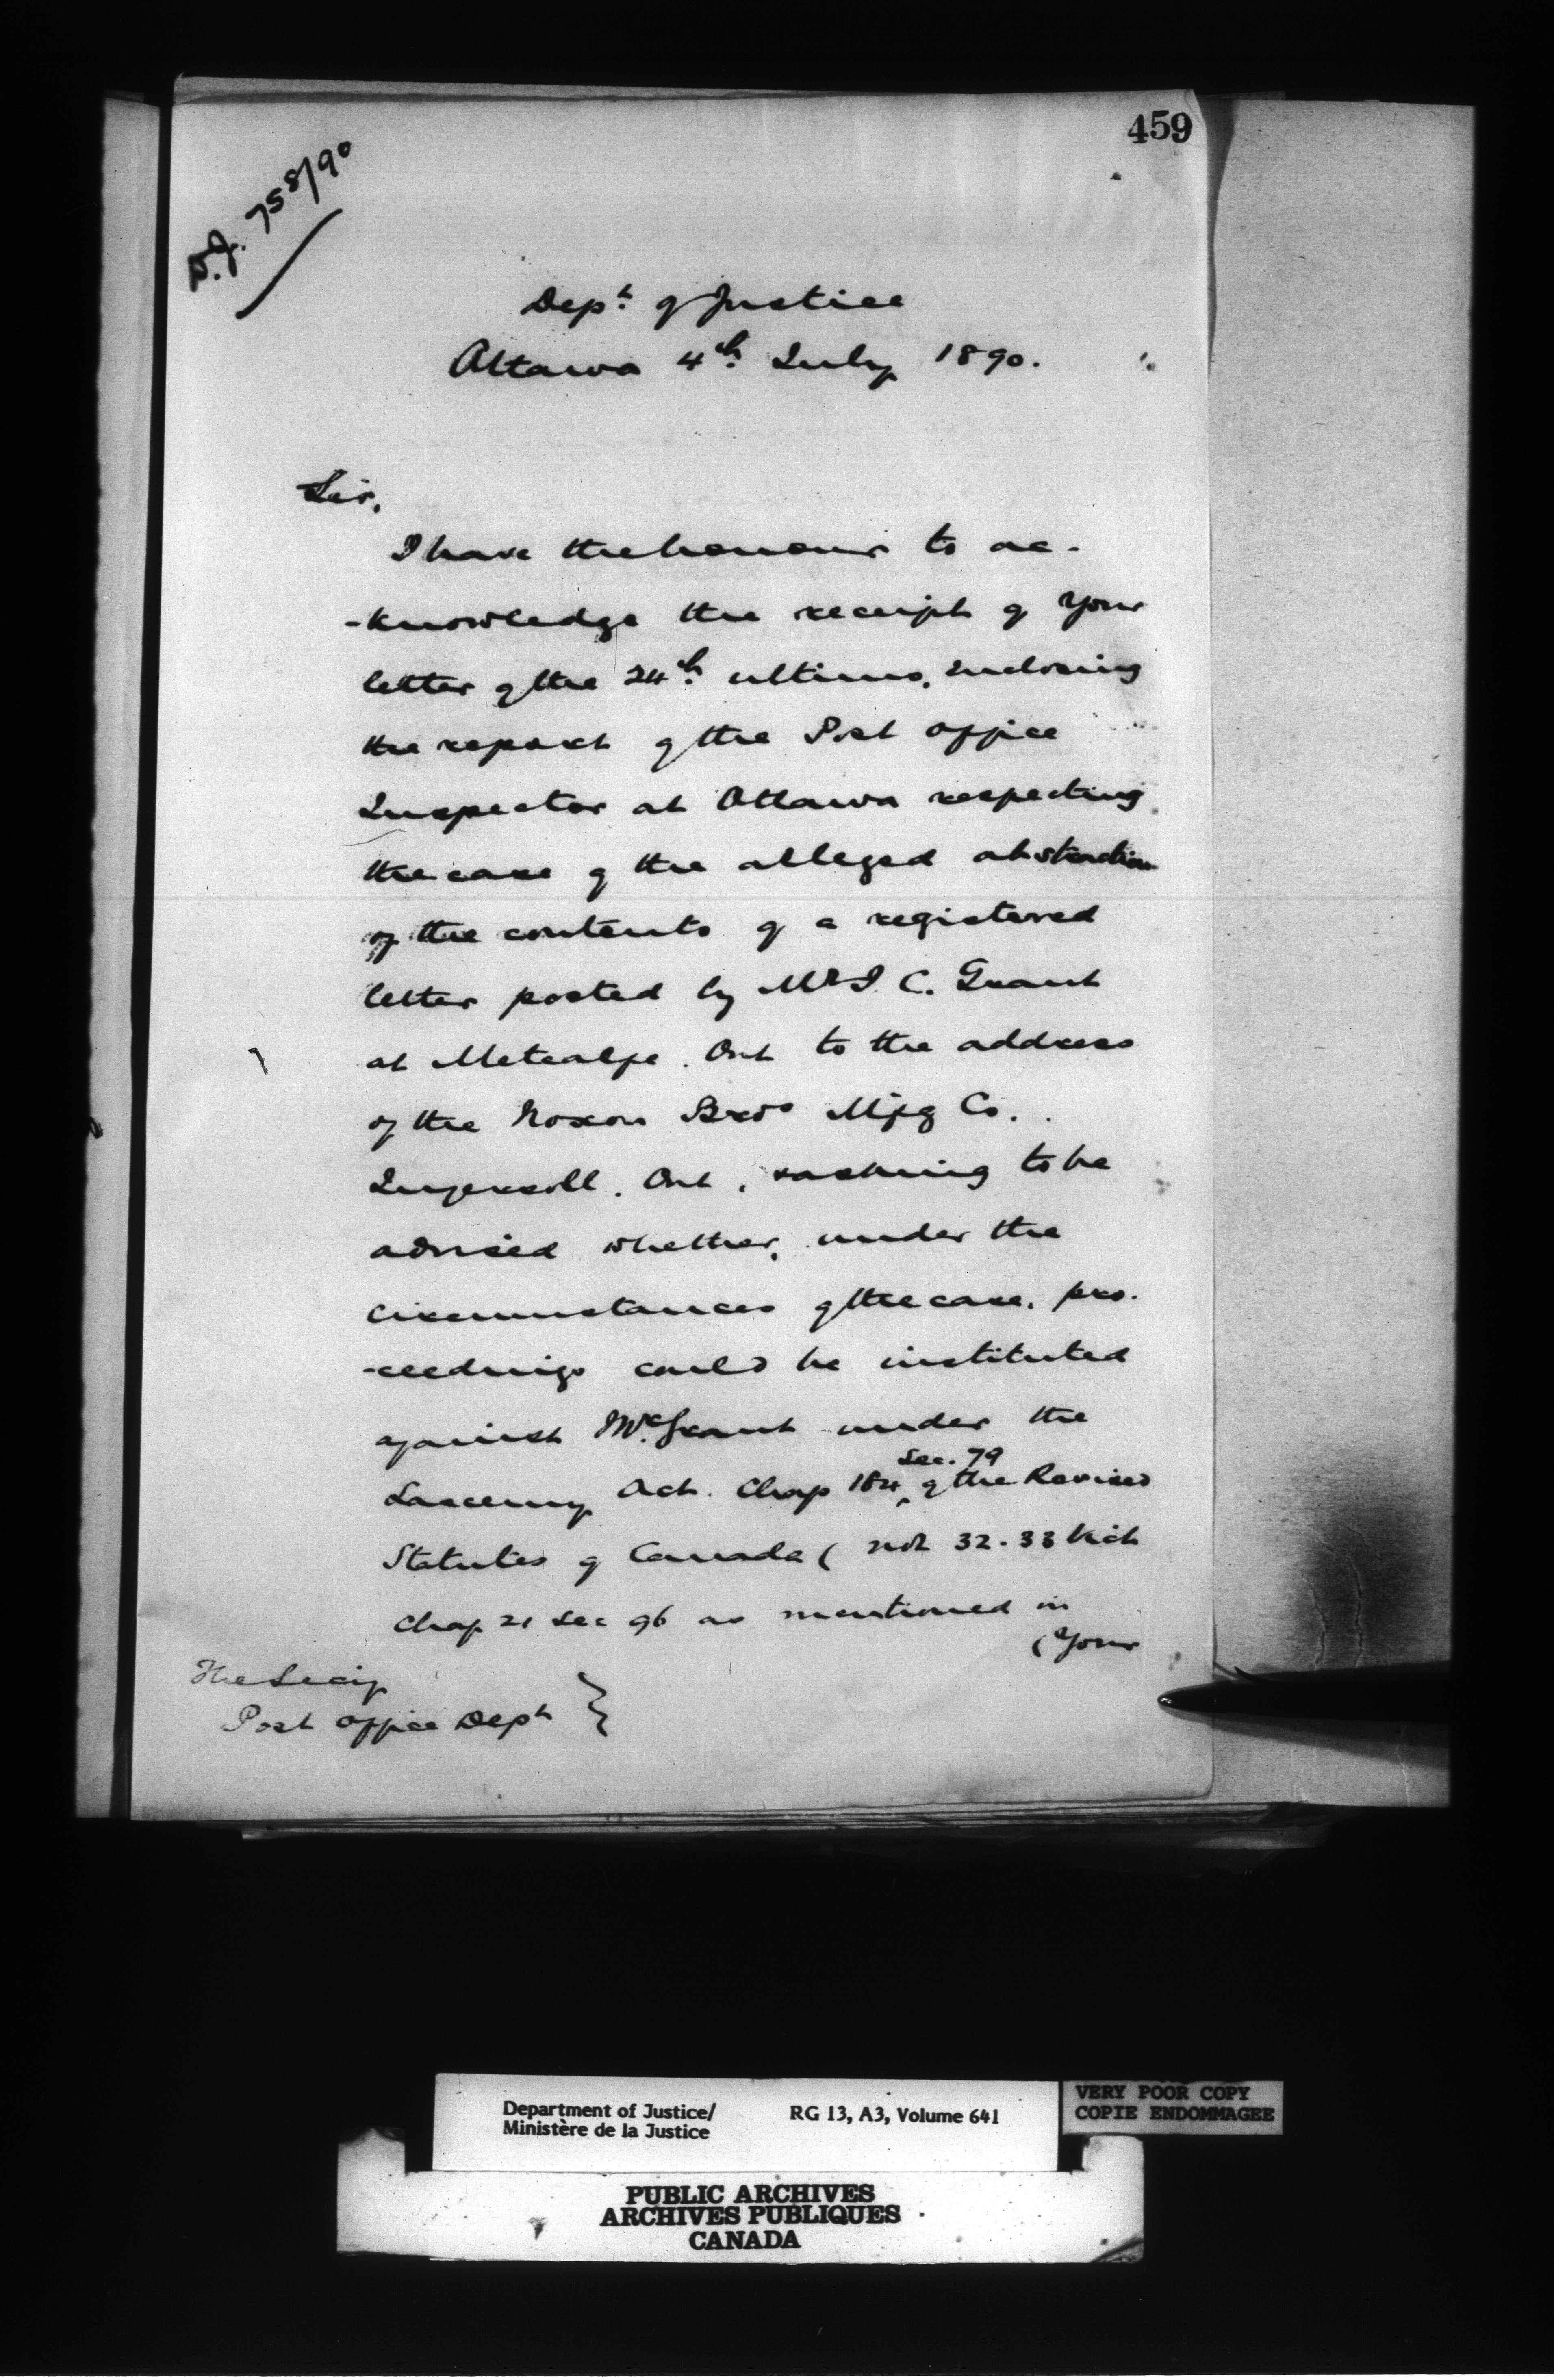 459
D.J. 758/90
Dept. of Justice
Ottawa 4th. July 1890.
Sir,
I have the honour to ac-
-knowledge the receipt of your
letter of the 24th. ultimo, enclosing
the report of the Post Office
Inspector at Ottawa respecting
the case of the alleged abstraction
of the contents of a registered
letter posted by Mr C. Grant
at Metcalfe. Ont to the address
of the Noxon Bros Mfg Co.
Ingersoll. Ont, & asking to be
advised whether, under the
circumstances of the case, pro-
-ceedings could be instituted
against Mr. Grant under the
Sec. 79
Larceny Act. Chap 164 of the Revised
Statutes of Canada ( not 32-33 Vict
Chap 21 Sec 96 as mentioned in
(Your
The Secy
Post Office Dept }
Department of Justice/
Ministère de la Justice
RG 13, A3, Volume 641
VERY POOR COPY
COPIE ENDOMMAGEE
PUBLIC ARCHIVES
ARCHIVES PUBLIQUES
CANADA